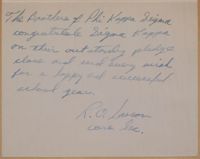 The Brothers of Phi Kappa Sigma
congratulate Sigma Kappa
on their outstanding pledge
class and send every wish
for a happy and successful
school year.
R. O.
Sec.